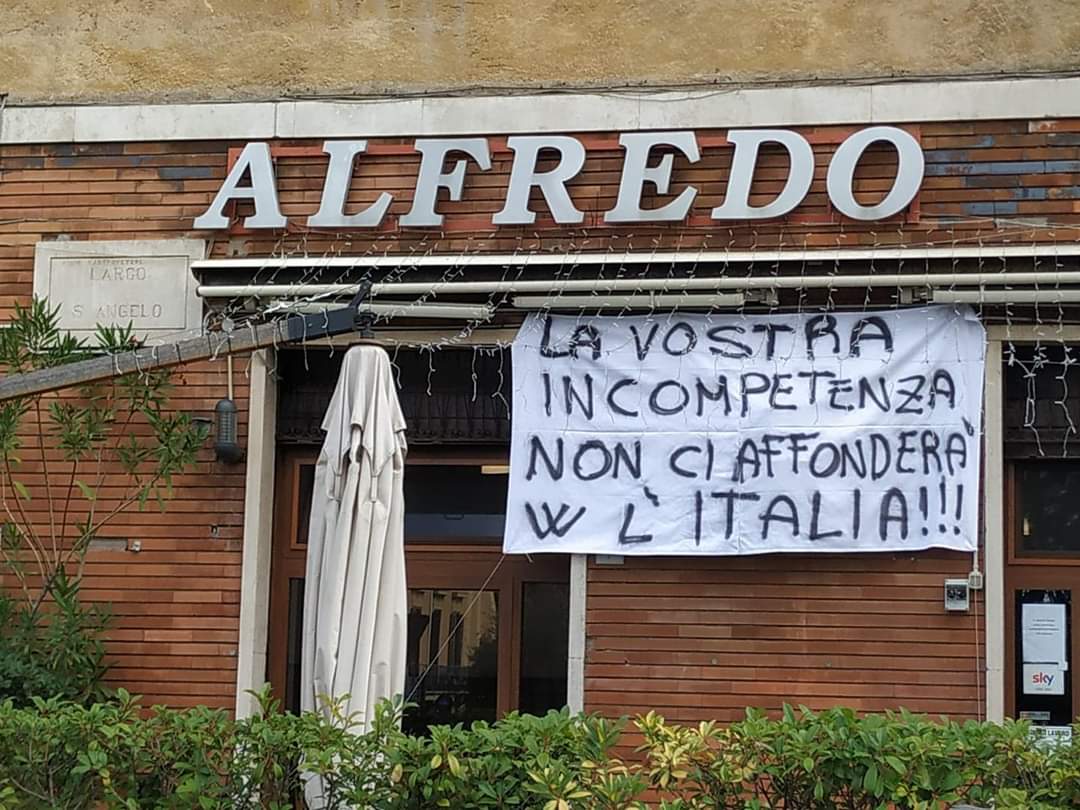 ALFREDO
LARGO
S. ANGELO
LA VOSTRA
INCOMPETENZA
NON CI AFFONDERÀ
W L'ITALIA!!!
sky